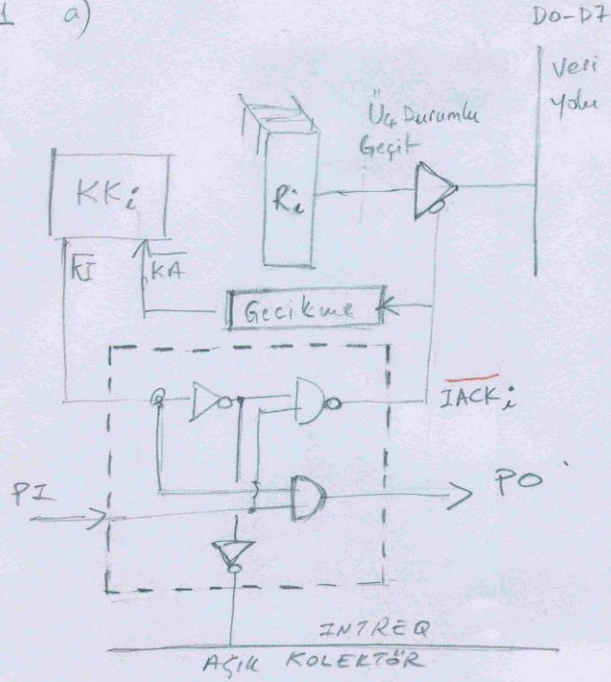 1 a)
D0-D7
Veri
yolu
Üç Durumlu
Geçit
KKi
Ri
K̅I̅
K̅A̅
Gecikme
I̅A̅C̅K̅i
PI
PO
INTREQ
AÇIK KOLEKTÖR